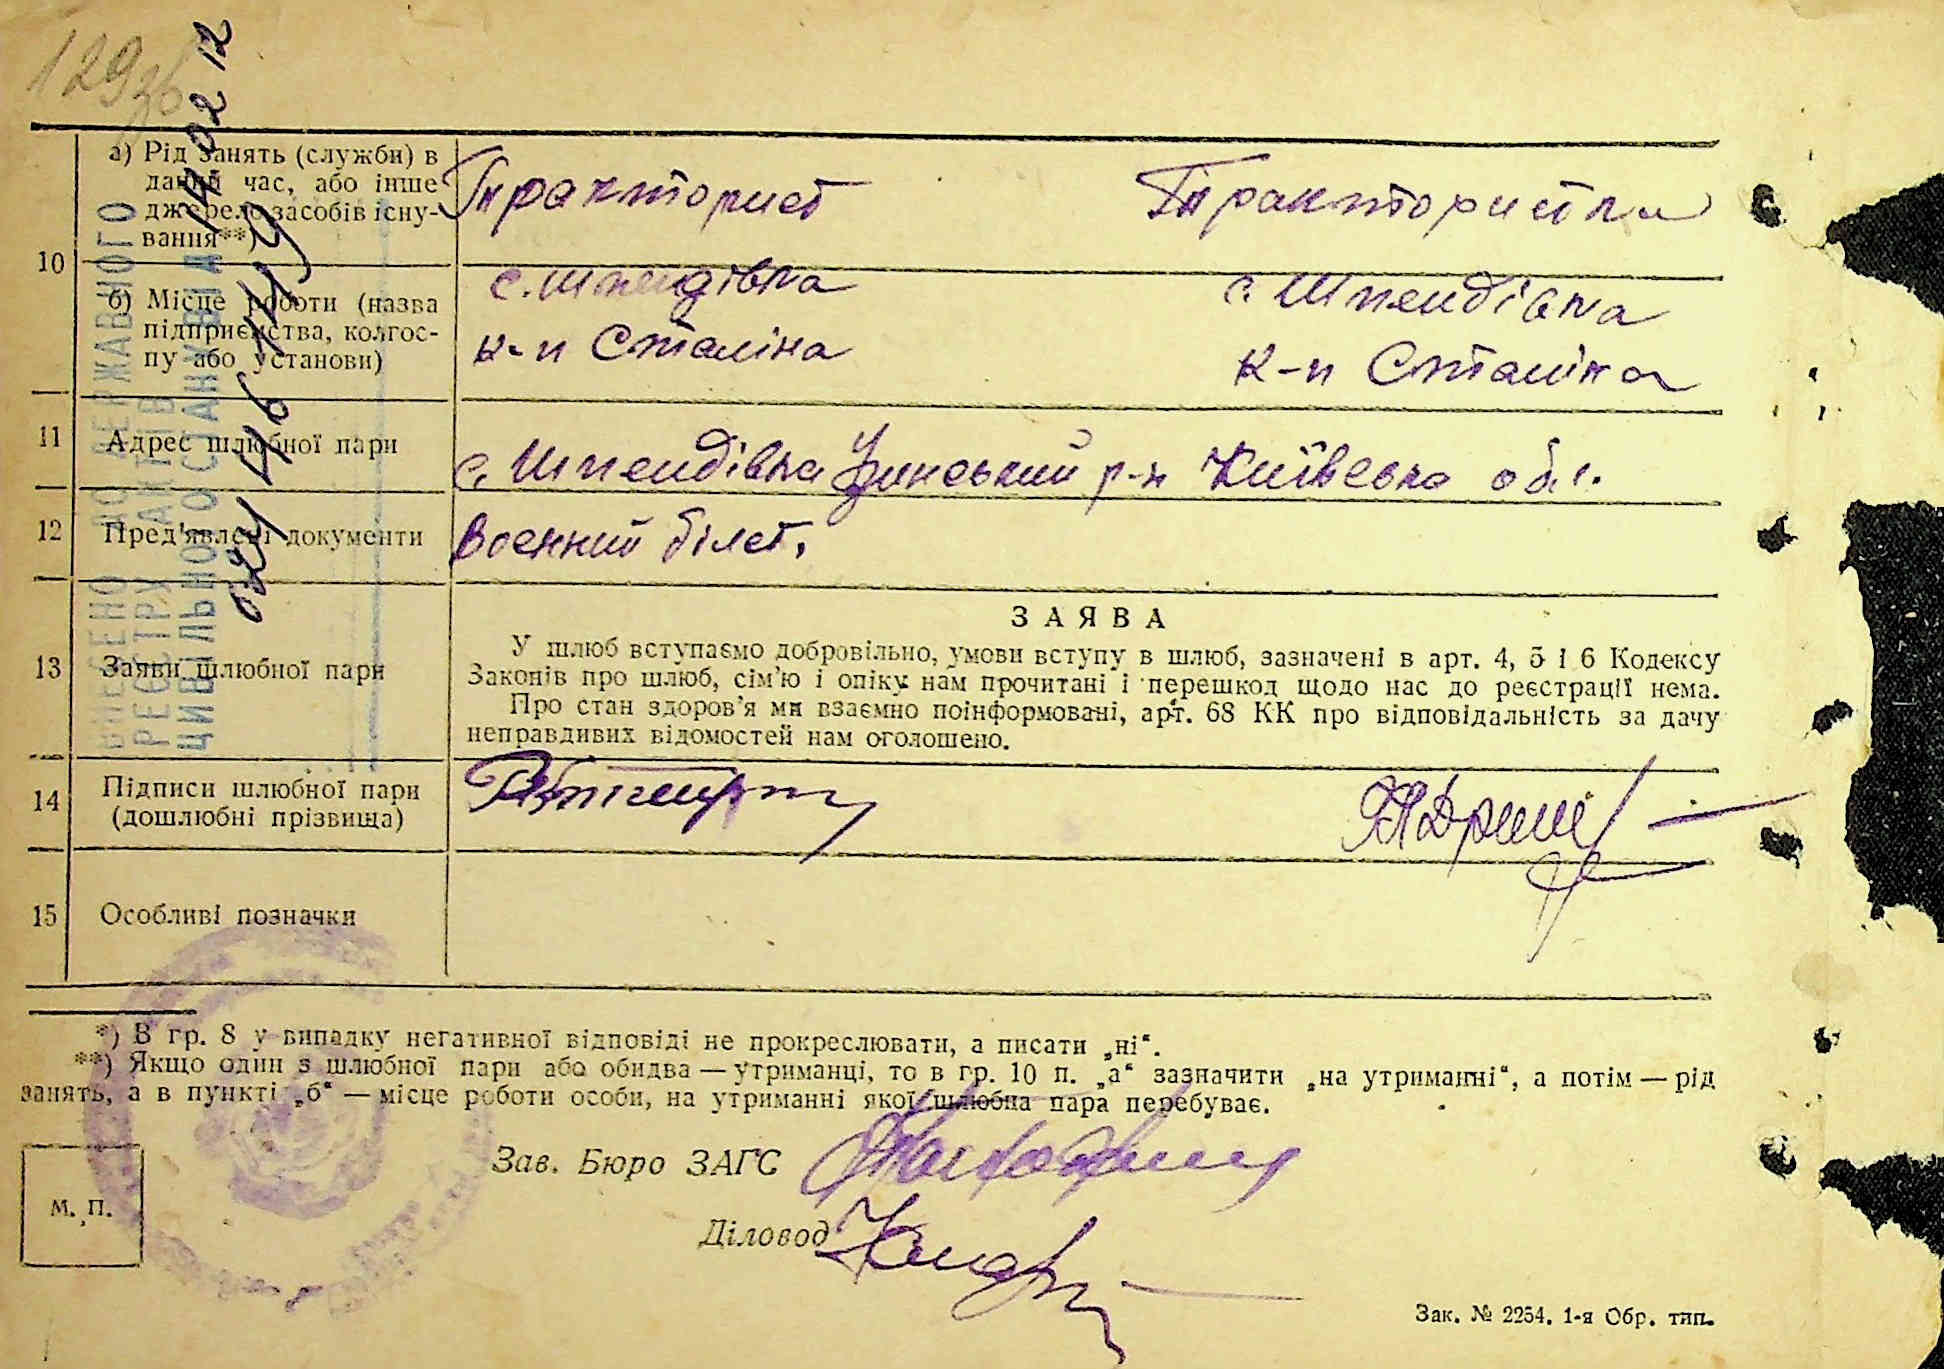 129зв
14 02 12
024 46 449
ВНЕСЕНО ДО ДЕРЖАВНОГО
РЕЄСТРУ АКТІВ
ЦИВІЛЬНОГО СТАНУ
10
а) Рід занять (служби) в
даний час, або інше
джерело засобів існу-
вання**)
Тракторист
Трактористка
б) Місце роботи (назва
підприємства, колгос-
пу або установи)
с. Шпендівка
к-п Сталіна
с. Шпендівка
к-п Сталіна
11
Адрес шлюбної пари
с. Шпендівка р-н Київська обл.
12
Пред'явлені документи
Военний білет.
13
Заяви шлюбної пари
ЗАЯВА
У шлюб вступаємо добровільно, умови вступу в шлюб, зазначені в арт. 4, 5 і 6 Кодексу
Законів про шлюб, сім'ю і опіку нам прочитані і перешкод щодо нас до реєстрації нема.
Про стан здоров'я ми взаємно поінформовані, арт. 68 КК про відповідальність за дачу
неправдивих відомостей нам оголошено.
14
Підписи шлюбної пари
(дошлюбні прізвища)
15
Особливі позначки
*) В гр. 8 у випадку негативної відповіді не прокреслювати, а писати „ні“.
**) Якщо один з шлюбної пари або обидва — утриманці, то в гр. 10 п. „а“ зазначити „на утриманні“, а потім — рід
занять, а в пункті „б“ — місце роботи особи, на утриманні якої шлюбна пара перебуває.
Зав. Бюро ЗАГС
М. П.
Діловод
Зак. № 2254. 1-я Обр. тип.